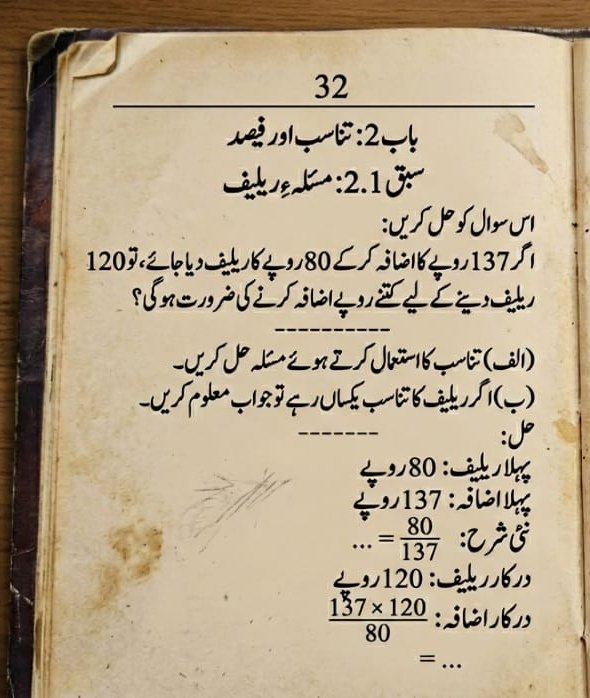 32
باب 2: تناسب اور فیصد
سبق 2.1: مسئلہءِ ریلیف
اس سوال کو حل کریں:
اگر 137 روپے کا اضافہ کر کے 80 روپے کا ریلیف دیا جائے، تو 120
ریلیف دینے کے لیے کتنے روپے اضافہ کرنے کی ضرورت ہوگی؟
----------
(الف) تناسب کا استعمال کرتے ہوئے مسئلہ حل کریں۔
(ب) اگر ریلیف کا تناسب یکساں رہے تو جواب معلوم کریں۔
حل:
-------
پہلا ریلیف: 80 روپے
پہلا اضافہ: 137 روپے
نئی شرح: 80/137 = ...
درکار ریلیف: 120 روپے
درکار اضافہ: 137 × 120 / 80
= ...